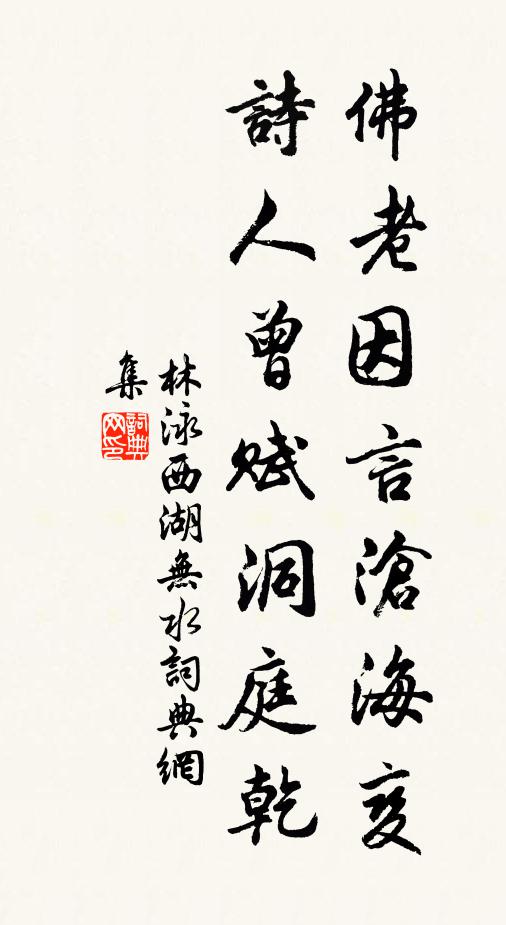 佛老因言滄海变
詩人曾赋洞庭乾
林泳西湖無水詞典網
集
詞典
网印